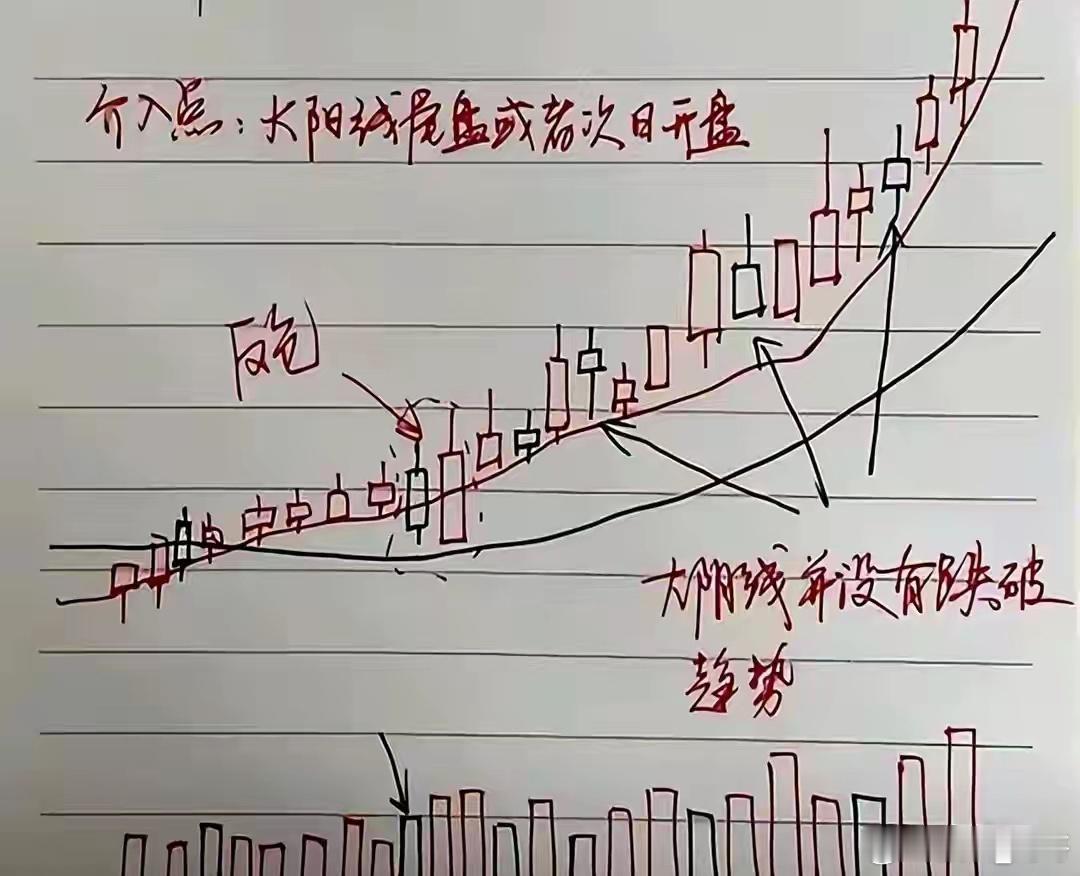 介入点：大阳线尾盘或者次日开盘
反包
大阴线并没有跌破
趋势